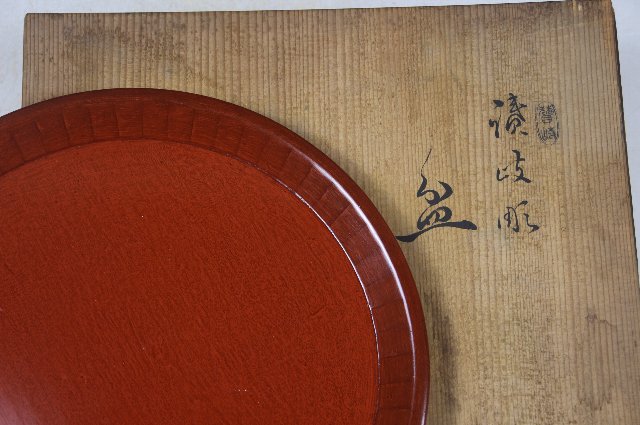 讃岐彫
盆